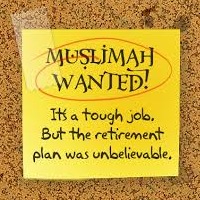 MUSLIMAH
WANTED!
It's a tough job.
But the retirement
plan was unbelievable.